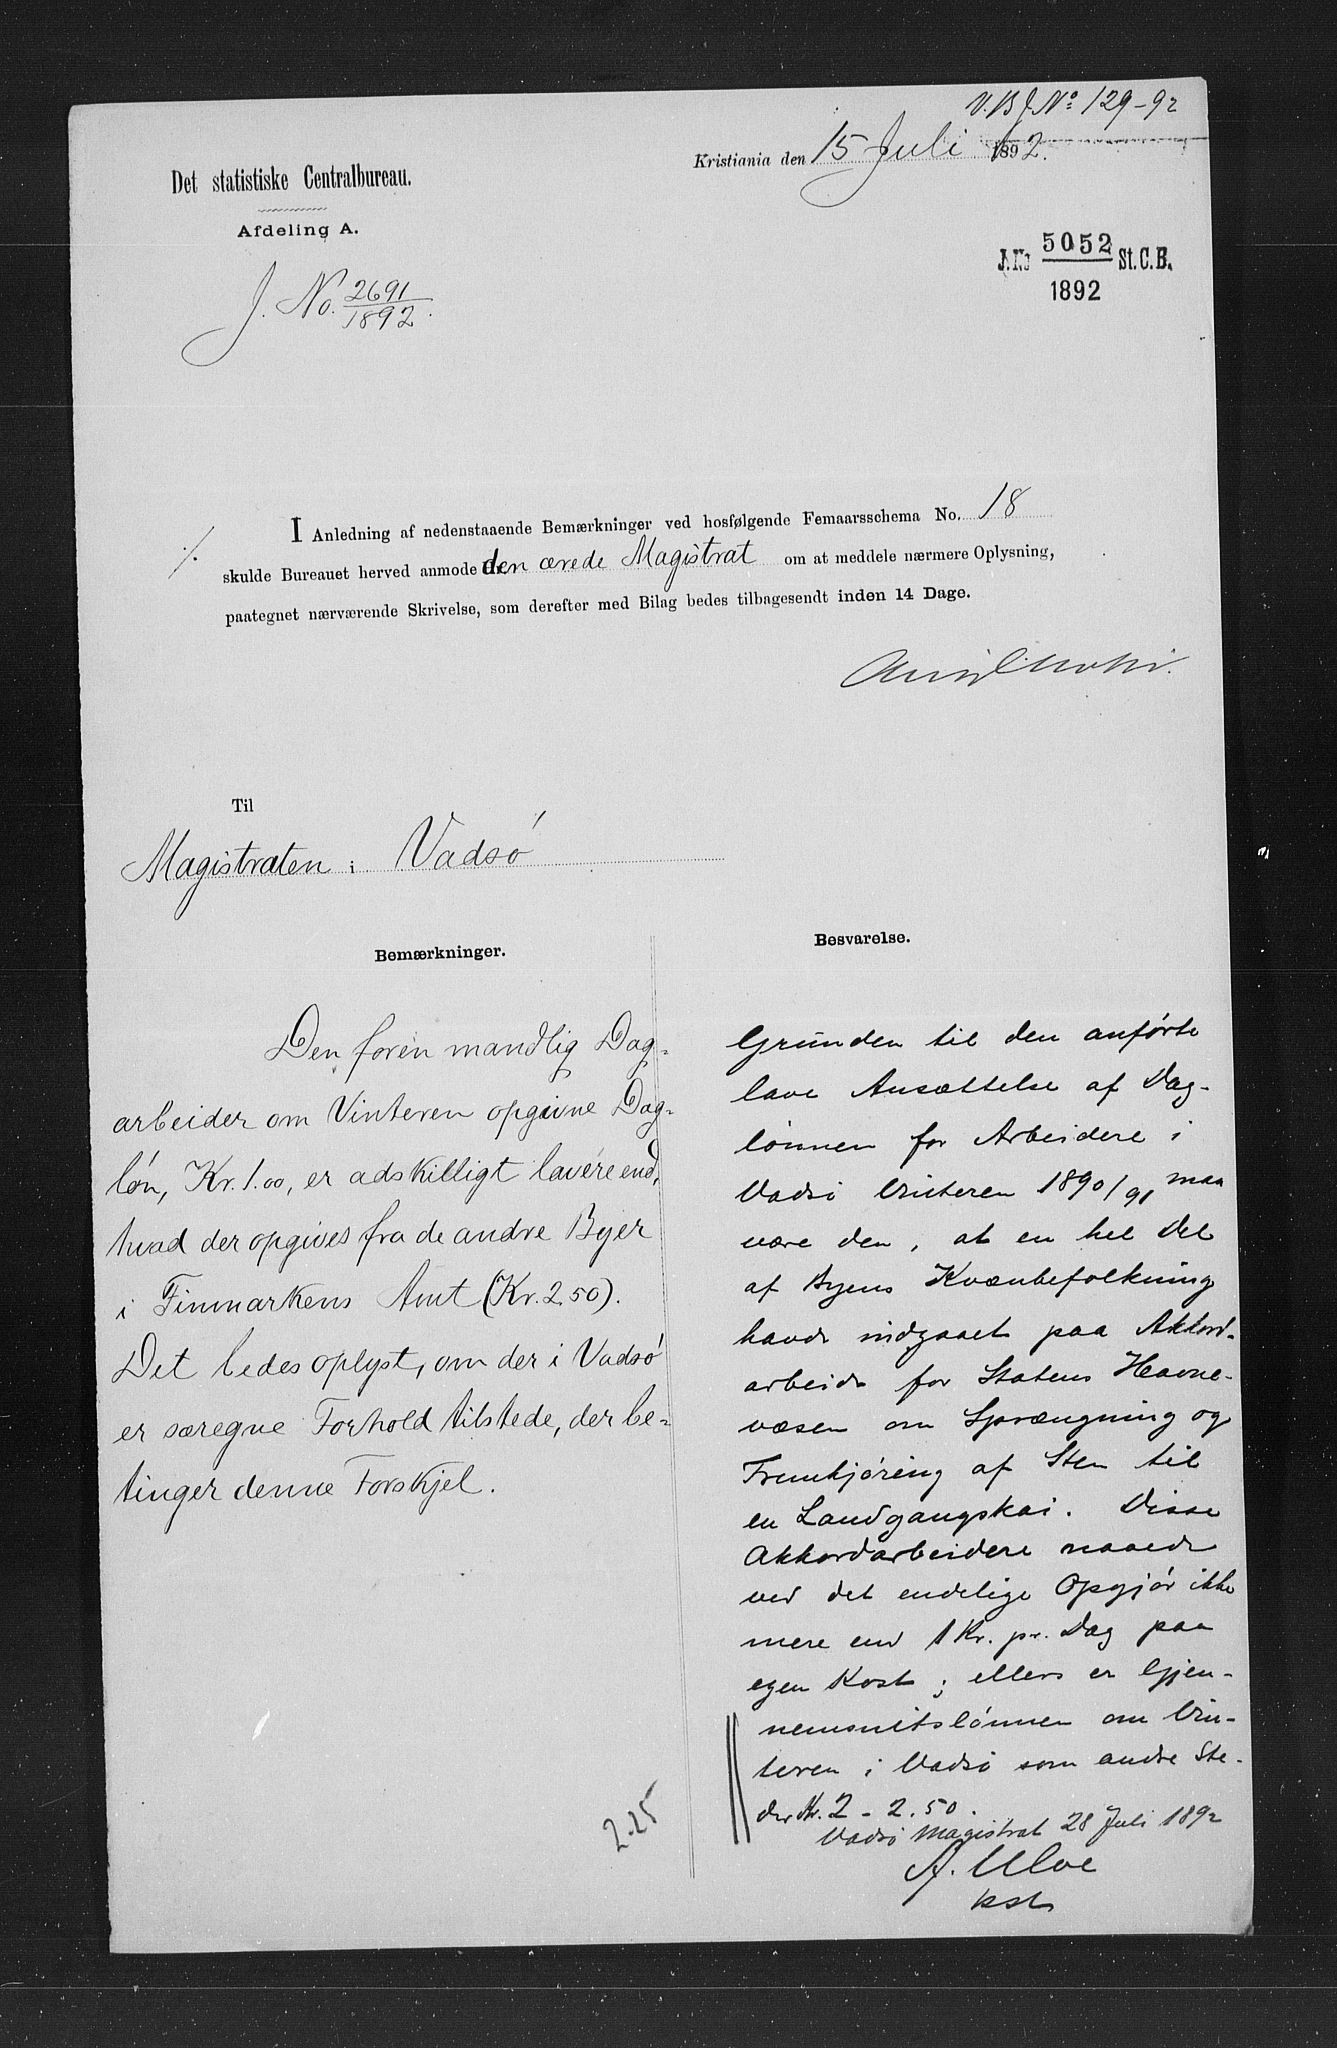 V.B J. No 129-92
Kristiania den 15 Juli 1892.
Det statistiske Centralbureau.
Afdeling A.
J. No. 2691
1892.
J. No 5052 St. C. B.
1892
I Anledning af nedenstaaende Bemærkninger ved hosfølgende Femaarsschema No. 18
·/. skulde Bureauet herved anmode den ærede Magistrat om at meddele nærmere Oplysning,
paategnet nærværende Skrivelse, som derefter med Bilag bedes tilbagesendt inden 14 Dage.
Til
Magistraten i Vadsö
Bemærkninger.
Den for en mandlig Dag-
arbeider om Vinteren opgivne Dag-
løn, Kr. 1.00, er adskilligt lavere end,
hvad der opgives fra de andre Byer
i Finmarkens Amt (Kr. 2.50).
Det bedes oplyst, om der i Vadsö
er særegne Forhold tilstede, der be-
tinger denne Forskjel.
2.25
Besvarelse.
Grunden til den anførte
lave Ansættelse af Dag-
lønnen for Arbeidere i
Vadsø Vinteren 1890/91 maa
være den, at en hel Del
af Byens Kvænbefolkning
havde indgaaet paa Akkord-
arbeide for Statens Havne-
væsen om Sprængning og
Fremkjøring af Sten til
en Landgangskai. Disse
Akkordarbeidere naaede
ved det endelige Opgjør ikke
mere end 1 Kr. pr. Dag paa
egen Kost; ellers er Gjen-
nemsnitslønnen om Vin-
teren i Vadsø som andre Ste-
der Kr. 2 - 2.50.
Vadsø Magistrat 28 Juli 1892
A. Ulve
kst